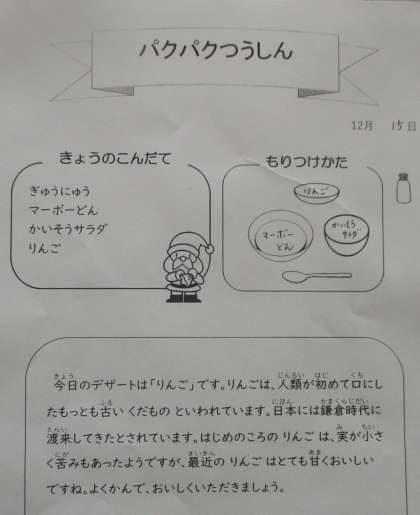 パクパクつうしん
12月 15日
きょうのこんだて
ぎゅうにゅう
マーボーどん
かいそうサラダ
りんご
もりつけかた
りんご
マーボー
どん
かいそう
サラダ
今日のデザートは「りんご」です。りんごは、人類が初めて口にし
たもっとも古い くだもの といわれています。日本には鎌倉時代に
渡来してきたとされています。はじめのころの りんご は、実が小さ
く苦みもあったようですが、最近の りんご はとても甘くおいしい
ですね。よくかんで、おいしくいただきましょう。